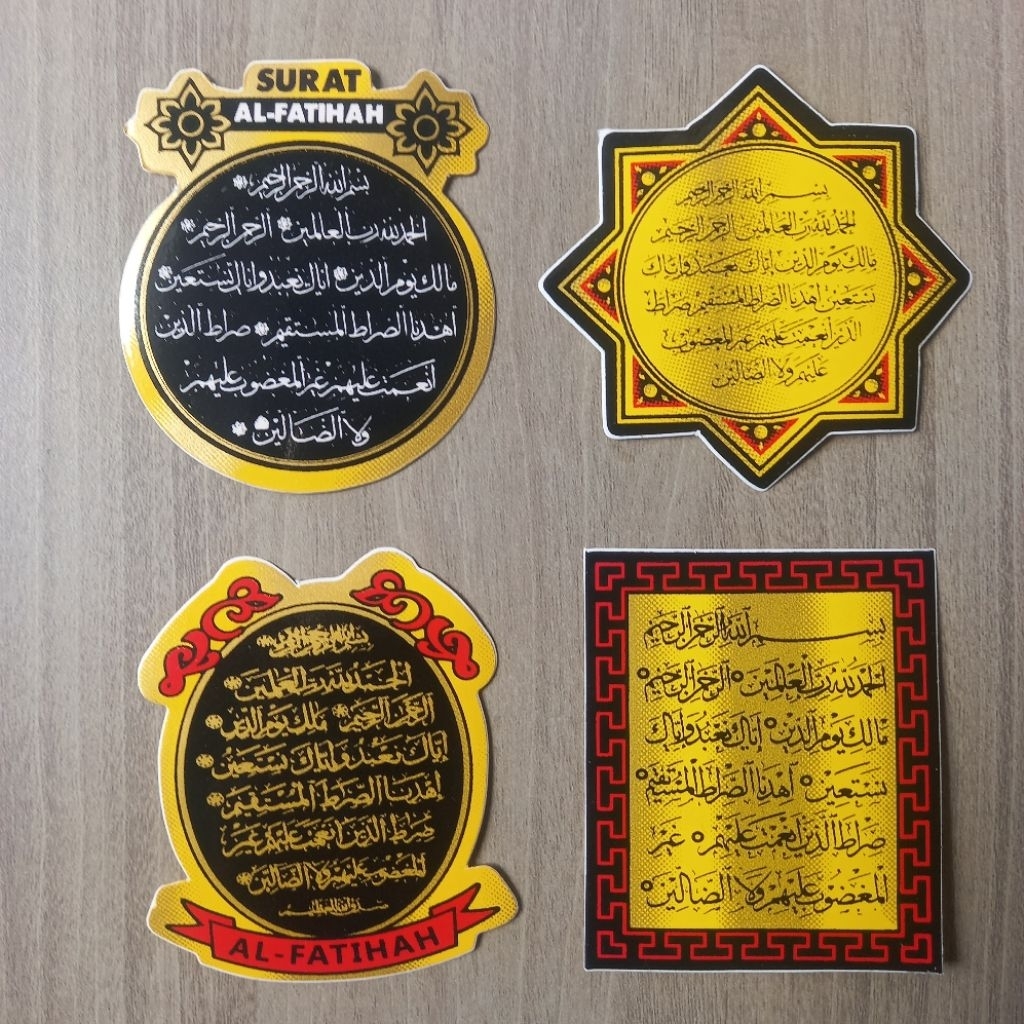 SURAT
AL-FATIHAH
بسم الله الرحمن الرحيم
الحمد لله رب العالمين الرحمن الرحيم
مالك يوم الدين اياك نعبد واياك نستعين
اهدنا الصراط المستقيم صراط الذين
انعمت عليهم غير المغضوب عليهم
ولا الضالين
بسم الله الرحمن الرحيم
الحمد لله رب العالمين الرحمن الرحيم
مالك يوم الدين اياك نعبد واياك
نستعين اهدنا الصراط المستقيم صراط
الذين انعمت عليهم غير المغضوب
عليهم ولا الضالين
بسم الله الرحمن الرحيم
الحمد لله رب العلمين
الرحمن الرحيم ملك يوم الدين
اياك نعبد واياك نستعين
اهدنا الصرط المستقيم
صرط الذين انعمت عليهم غير
المغضوب عليهم ولا الضالين
صدق الله العظيم
AL-FATIHAH
بسم الله الرحمن الرحيم
الحمد لله رب العلمين الرحمن الرحيم
مالك يوم الدين اياك نعبد واياك
نستعين اهدنا الصراط المستقيم
صراط الذين انعمت عليهم غير
المغضوب عليهم ولا الضالين